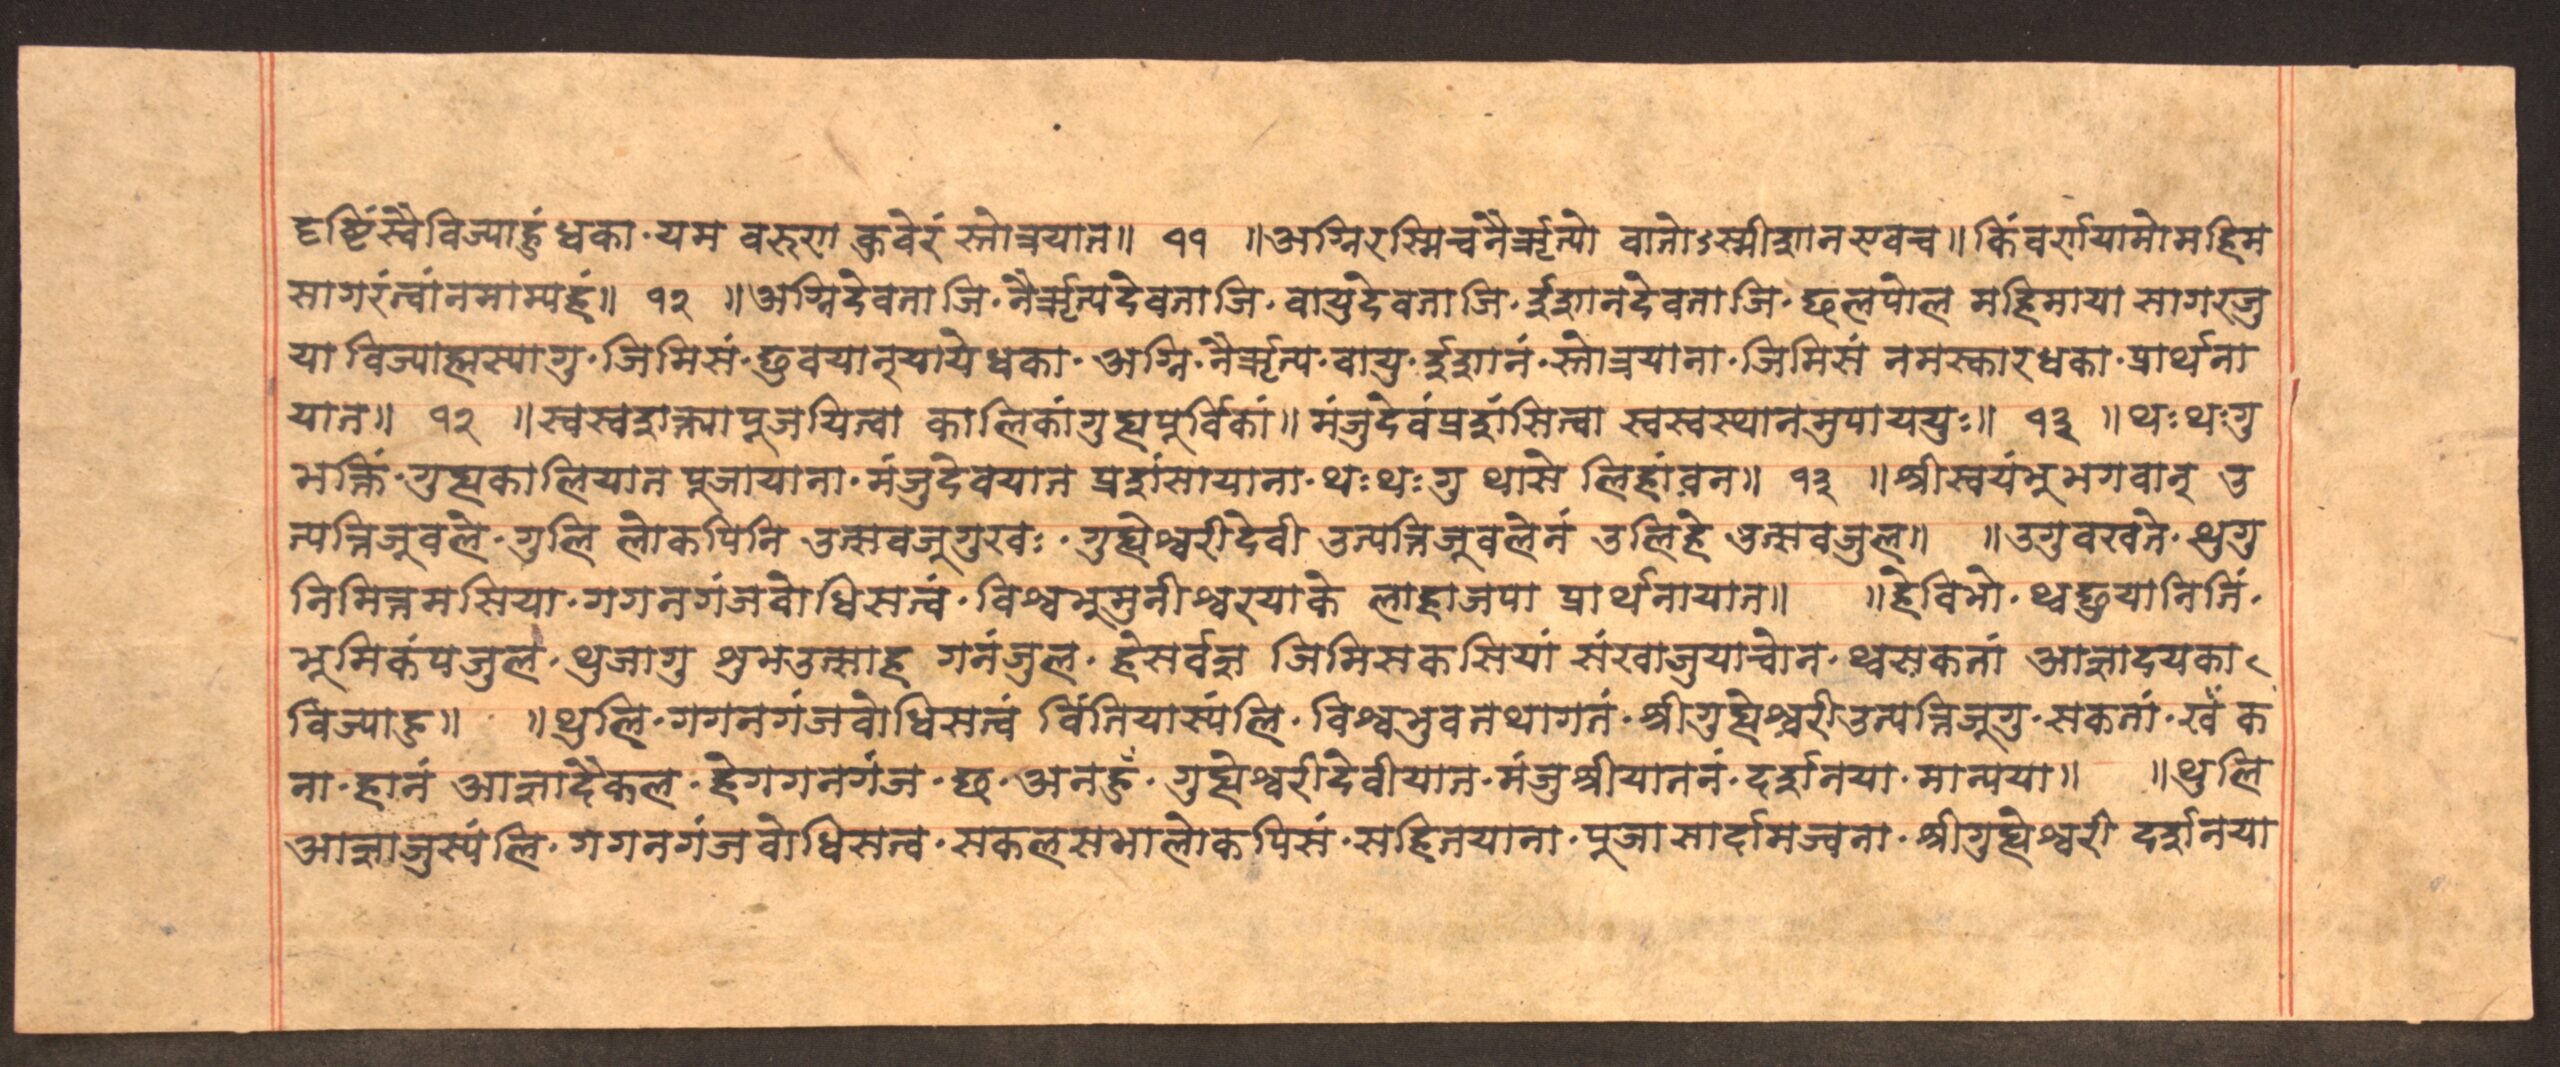 दृष्टिंस्वैविज्याहुं ध्वका·यम वरुण कुवेरं स्तोत्रयात॥ ११ ॥अग्निरस्मिचनैर्ऋत्यो वातोऽस्मीशानएवच॥किंवर्णयामोमहिम
सागरंत्वांनमाम्यहं॥ १२ ॥अग्निदेवताजि·नैर्ऋत्यदेवताजि·वायुदेवताजि·ईशानदेवताजि·छलपोल महिमाया सागरजु
या विज्याह्मस्यागु·जिमिसं·छुवयान्यायेधका·अग्नि·नैर्ऋत्य·वायु·ईशानं·स्तोत्रयाना·जिमिसं नमस्कारधका·प्रार्थना
यात॥ १२ ॥स्वस्वशक्त्यापूजयित्वा कालिकांगुह्यपूर्विकां॥मंजुदेवंप्रशंसित्वा स्वस्वस्थानमुपाययुः॥ १३ ॥थःथःगु
भक्तिं·गुह्यकालियात पूजायाना·मंजुदेवयात प्रशंसायाना·थःथःगु थासे लिहांवन॥ १३ ॥श्रीस्वयंभूभगवान् उ
त्पत्तिजूवले·गुलि लोकपिनि उत्सवजूगुखः·गुह्येश्वरीदेवी उत्पत्तिजूवलेनं उलिहे उत्सवजुल॥ ॥उगुवखते·थुगु
निमित्तमसिया·गगनगंजवोधिसत्वं·विश्वभूमुनीश्वरयाके लाहाजपा प्रार्थनायात॥ ॥हेविभो·थ्वछुयानितिं·
भूमिकंपजुल·थुजागु शुभउत्साह गनंजुल·हेसर्वज्ञ जिमिसकसियां संखाजुयाचोन·थ्वसकतां आज्ञादयका
विज्याहु॥ ॥थुलि·गगनगंजवोधिसत्वं विंतियास्यंलि·विश्वभुवनथागतं·श्रीगुह्येश्वरीउत्पत्तिजूगु·सकतां·खँ क
ना·हानं आज्ञादैकल·हेगगनगंज·छ·अनहुँ·गुह्येश्वरीदेवीयात·मंजुश्रीयातनं·दर्शनया·मान्यया॥ ॥थुलि
आज्ञाजुस्यंलि·गगनगंजवोधिसत्व·सकलसभालोकपिसं·सहितयाना·पूजासार्दामज्वना·श्रीगुह्येश्वरी दर्शनया